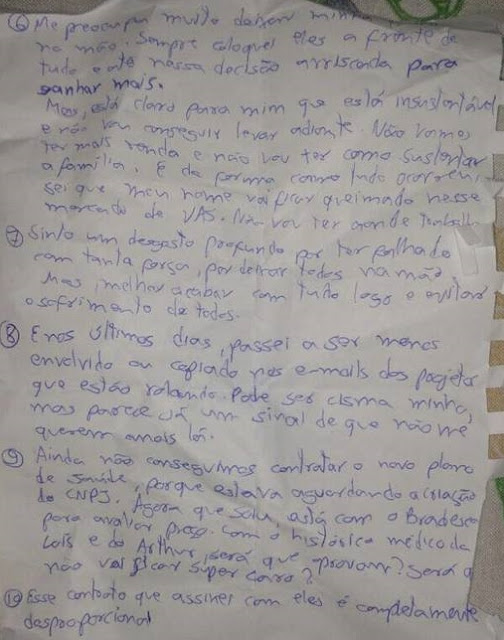 ⑥ Me preocupa muito deixar minha
na mão. Sempre coloquei eles a frente de
tudo e até nessa decisão arriscada para
ganhar mais.
Mas, está claro para mim que está insustentável
e não vou conseguir levar adiante. Não vamos
ter mais renda e não vou ter como sustentar
a família. E da forma como tudo ocorreu,
sei que meu nome vai ficar queimado nesse
mercado de VAS. Não vou ter onde trabalh
⑦ Sinto um desgosto profundo por ter falhado
com tanta força, por deixar todos na mão
Mas, melhor acabar com tudo logo e evitar
o sofrimento de todos.
⑧ E nos últimos dias, passei a ser menos
envolvido ou copiado nos e-mails dos projetos
que estão rolando. Pode ser cisma minha,
mas parece já um sinal de que não me
querem mais lá.
⑨ Ainda não conseguimos contratar o novo plano
de saúde, porque estava aguardando a criação
do CNPJ. Agora que saiu, está com o Bradesco
para avaliar preço. Com o histórico médico da
Laís e do Arthur, será que aprovam? Será q
não vai ficar super caro?
⑩ Esse contrato que assinei com eles é completamente
desproporcional